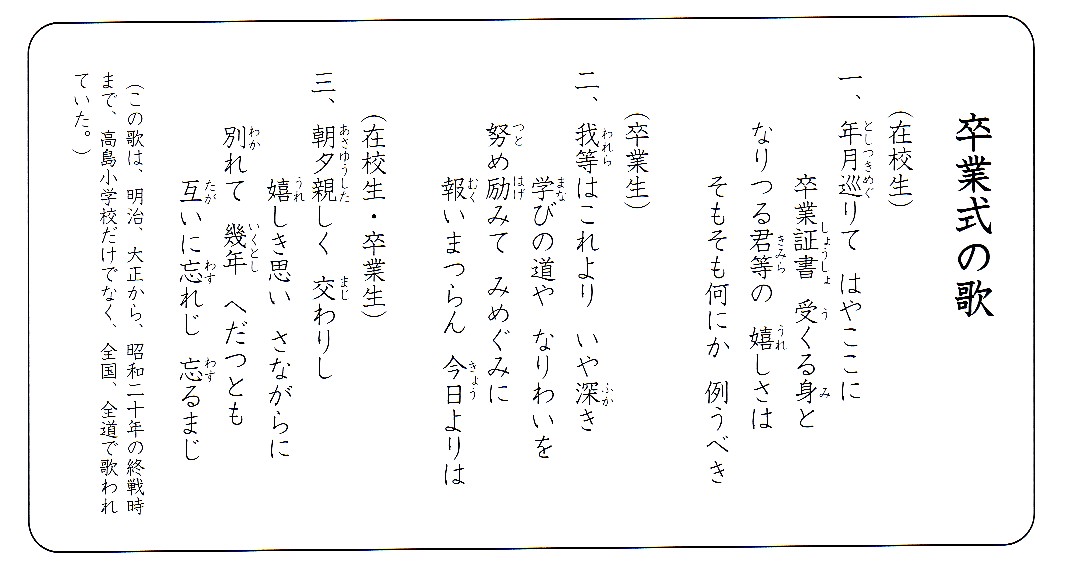 卒業式の歌
(在校生)
一、年月巡りて はやここに
卒業証書 受くる身と
なりつる君等の 嬉しさは
そもそも何にか 例うべき
(卒業生)
二、我等はこれより いや深き
学びの道や なりわいを
努め励みて みめぐみに
報いまつらん 今日よりは
(在校生・卒業生)
三、朝夕親しく 交わりし
嬉しき思い さながらに
別れて 幾年 へだつとも
互いに忘れじ 忘るまじ
(この歌は、明治、大正から、昭和二十年の終戦時
まで、高島小学校だけでなく、全国、全道で歌われ
ていた。)